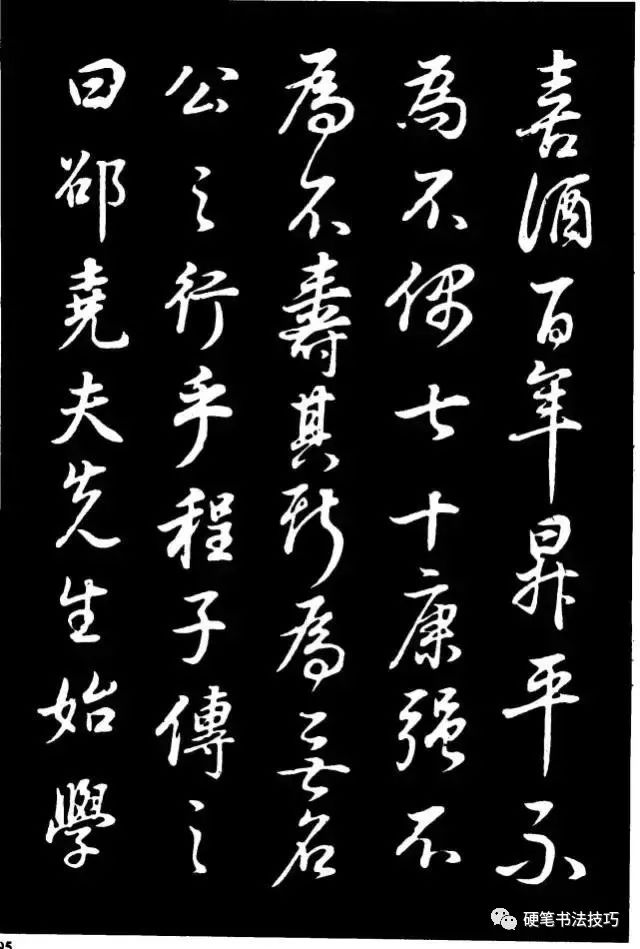 喜酒百年昇平不
為不偶七十康强不
為不壽其斯為無名
公之行乎程子傳之
曰邵堯夫先生始學
硬笔书法技巧